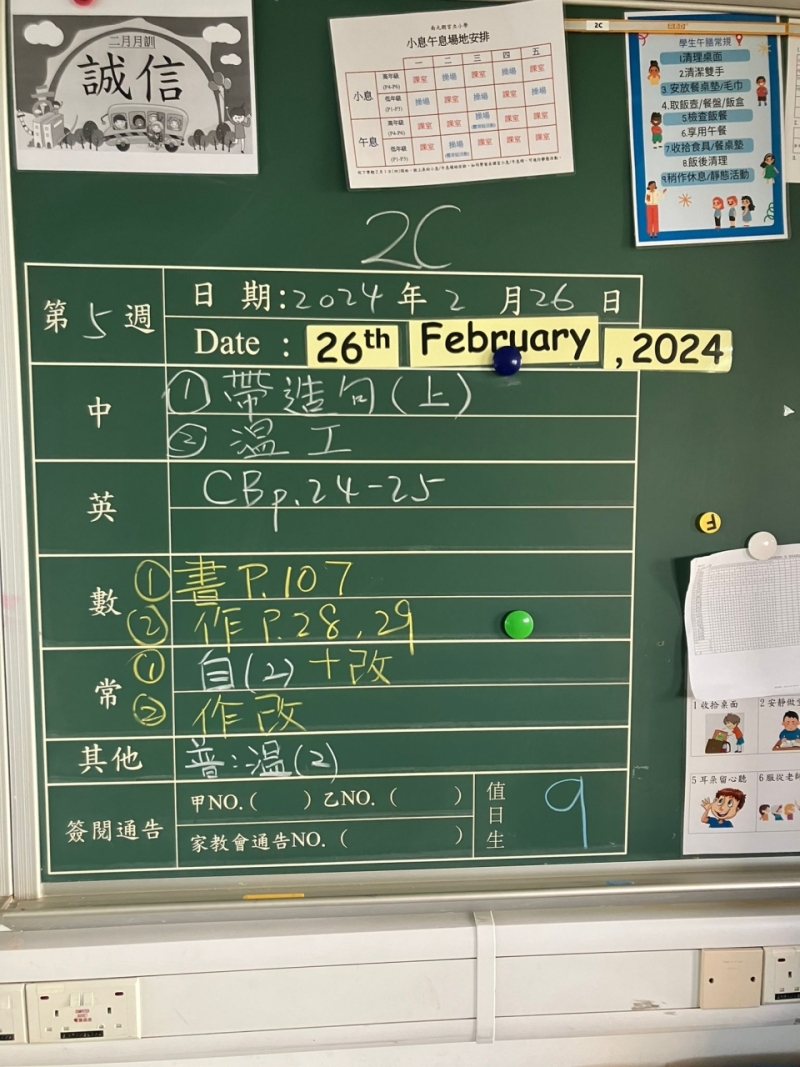 二月月訓
誠信
小息午息場地安排
一 二 三 四 五
小息
高年級 (P4-P6) 課室 操場 課室 操場 課室
低年級 (P1-P3) 操場 課室 操場 課室 操場
午息
高年級 (P4-P6) 課室 課室 課室
低年級 (P1-P3) 課室 操場 課室 課室 課室
2C
學生午膳常規
1清理桌面
2.清潔雙手
3.安放餐桌墊/毛巾
4.取飯壺/餐盤/飯盒
5檢查飯餐
6.享用午餐
7.收拾食具/餐桌墊
8飯後清理
9.稍作休息/靜態活動
2C
第 5 週
日 期:2024 年 2 月 26 日
Date : 26th February , 2024
中
① 帶造句(上)
② 溫工
英
CBp.24-25
數
① 書P.107
② 作P.28,29
常
① 自(2)+改
② 作改
其他
普:溫(2)
簽閱通告
甲NO.( ) 乙NO.( )
家教會通告NO.( )
值日生
9
F
1收拾桌面
2安靜做
5耳朵留心聽
6服從老師